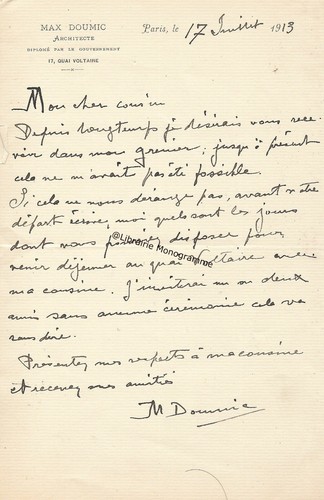 MAX DOUMIC
ARCHITECTE
DIPLOMÉ PAR LE GOUVERNEMENT
17, QUAI VOLTAIRE
Paris, le 17 Juillet 1913
Mon cher cousin
Depuis longtemps je désirais vous rece-
voir dans mon grenier ; jusqu'à présent
cela ne m'avait pas été possible.
Si cela ne vous dérange pas, avant votre
départ écrivez moi quels sont les jours
dont vous pouvez disposer pour
venir déjeuner au quai Voltaire avec
ma cousine. J'inviterai un ou deux
amis sans aucune cérémonie cela va
sans dire.
Présentez mes respects à ma cousine
et recevez mes amitiés
M Doumic
@Librairie Monogramme